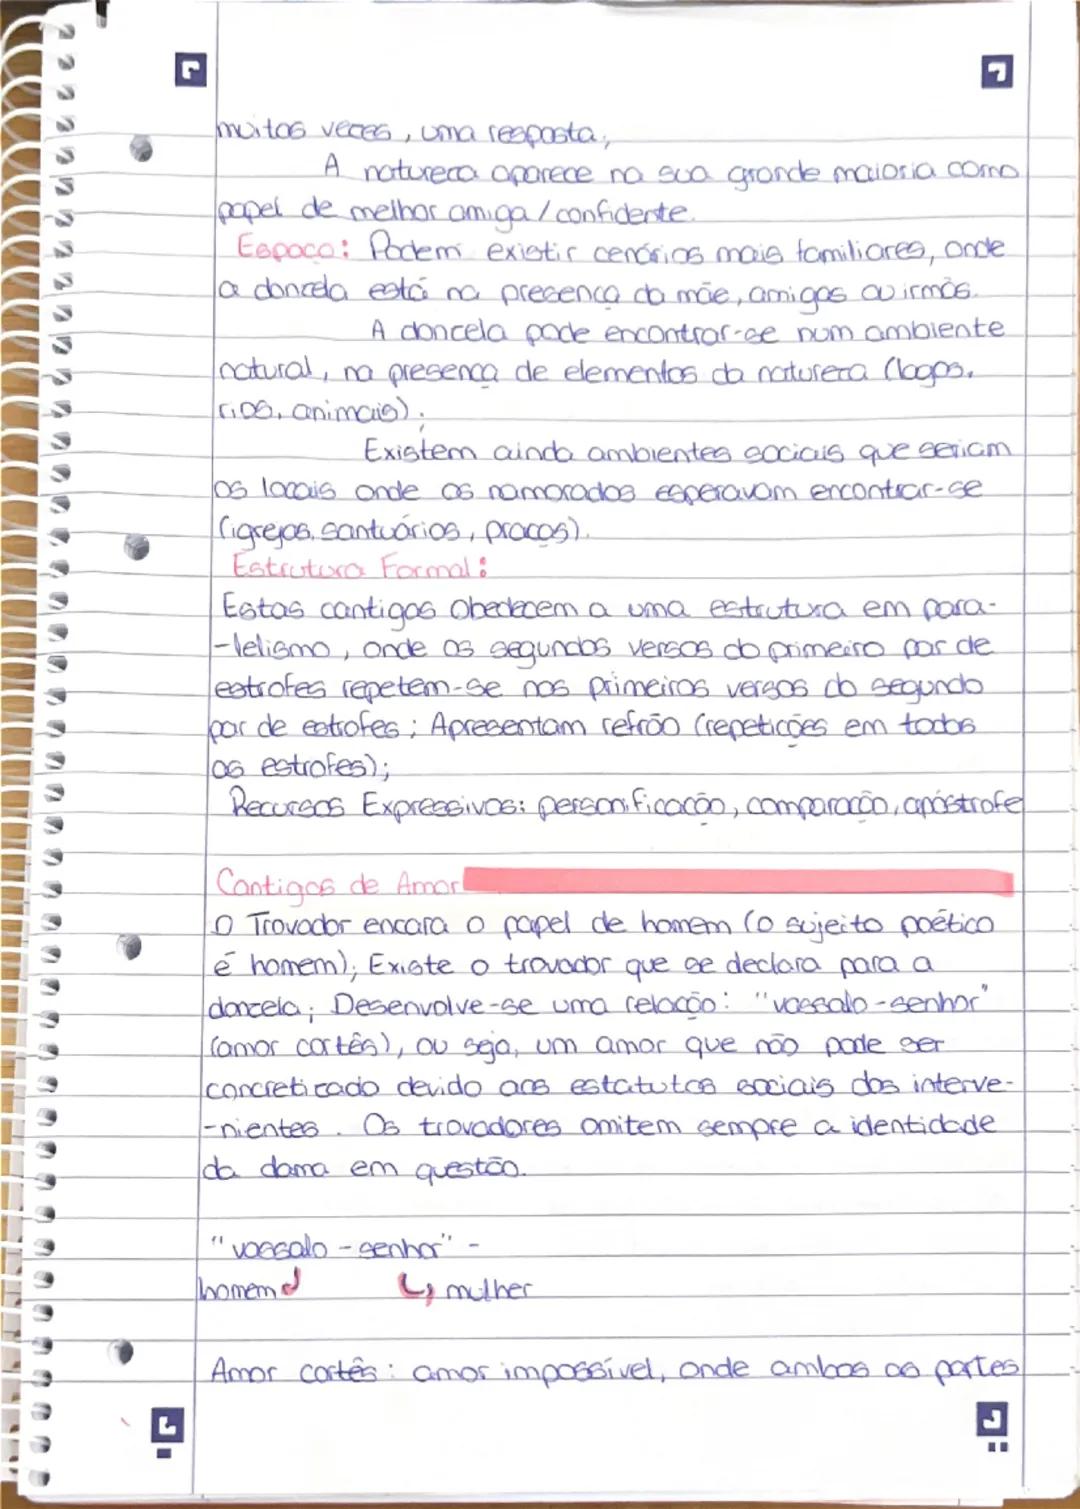 muitas vezes, uma resposta;
A natureza aparece na sua grande maioria como
papel de melhor amiga/confidente.
Espaço: Podem existir cenários mais familiares, onde
a donzela está na presença da mãe, amigas ou irmãs.
A donzela pode encontrar-se num ambiente
natural, na presença de elementos da natureza (lagos,
rios, animais).
Existem ainda ambientes sociais que seriam
os locais onde os namorados esperavam encontrar-se
(igrejas, santuários, praças).
Estrutura Formal:
Estas cantigas obedecem a uma estrutura em para-
-lelismo, onde os segundos versos do primeiro par de
estrofes repetem-se nos primeiros versos do segundo
par de estrofes; Apresentam refrão (repetições em todas
as estrofes);
Recursos Expressivos: personificação, comparação, apóstrofe
Cantigas de Amor
O Trovador encara o papel de homem (o sujeito poético
é homem); Existe o trovador que se declara para a
donzela; Desenvolve-se uma relação: "vassalo-senhor"
(amor cortês), ou seja, um amor que não pode ser
concretizado devido aos estatutos sociais dos interve-
-nientes. Os trovadores omitem sempre a identidade
da dama em questão.
"vassalo - senhor" -
homem mulher
Amor cortês: amor impossível, onde ambas as partes